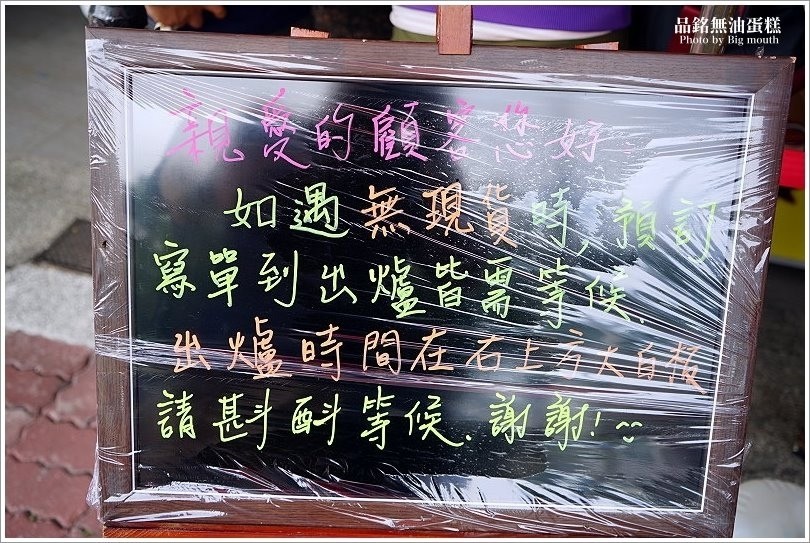 品銘無油蛋糕
Photo by Big mouth
親愛的顧客您好
如遇無現貨時,預訂
寫單到出爐皆需等候.
出爐時間在右上方大白板
請斟酌等候.謝謝!